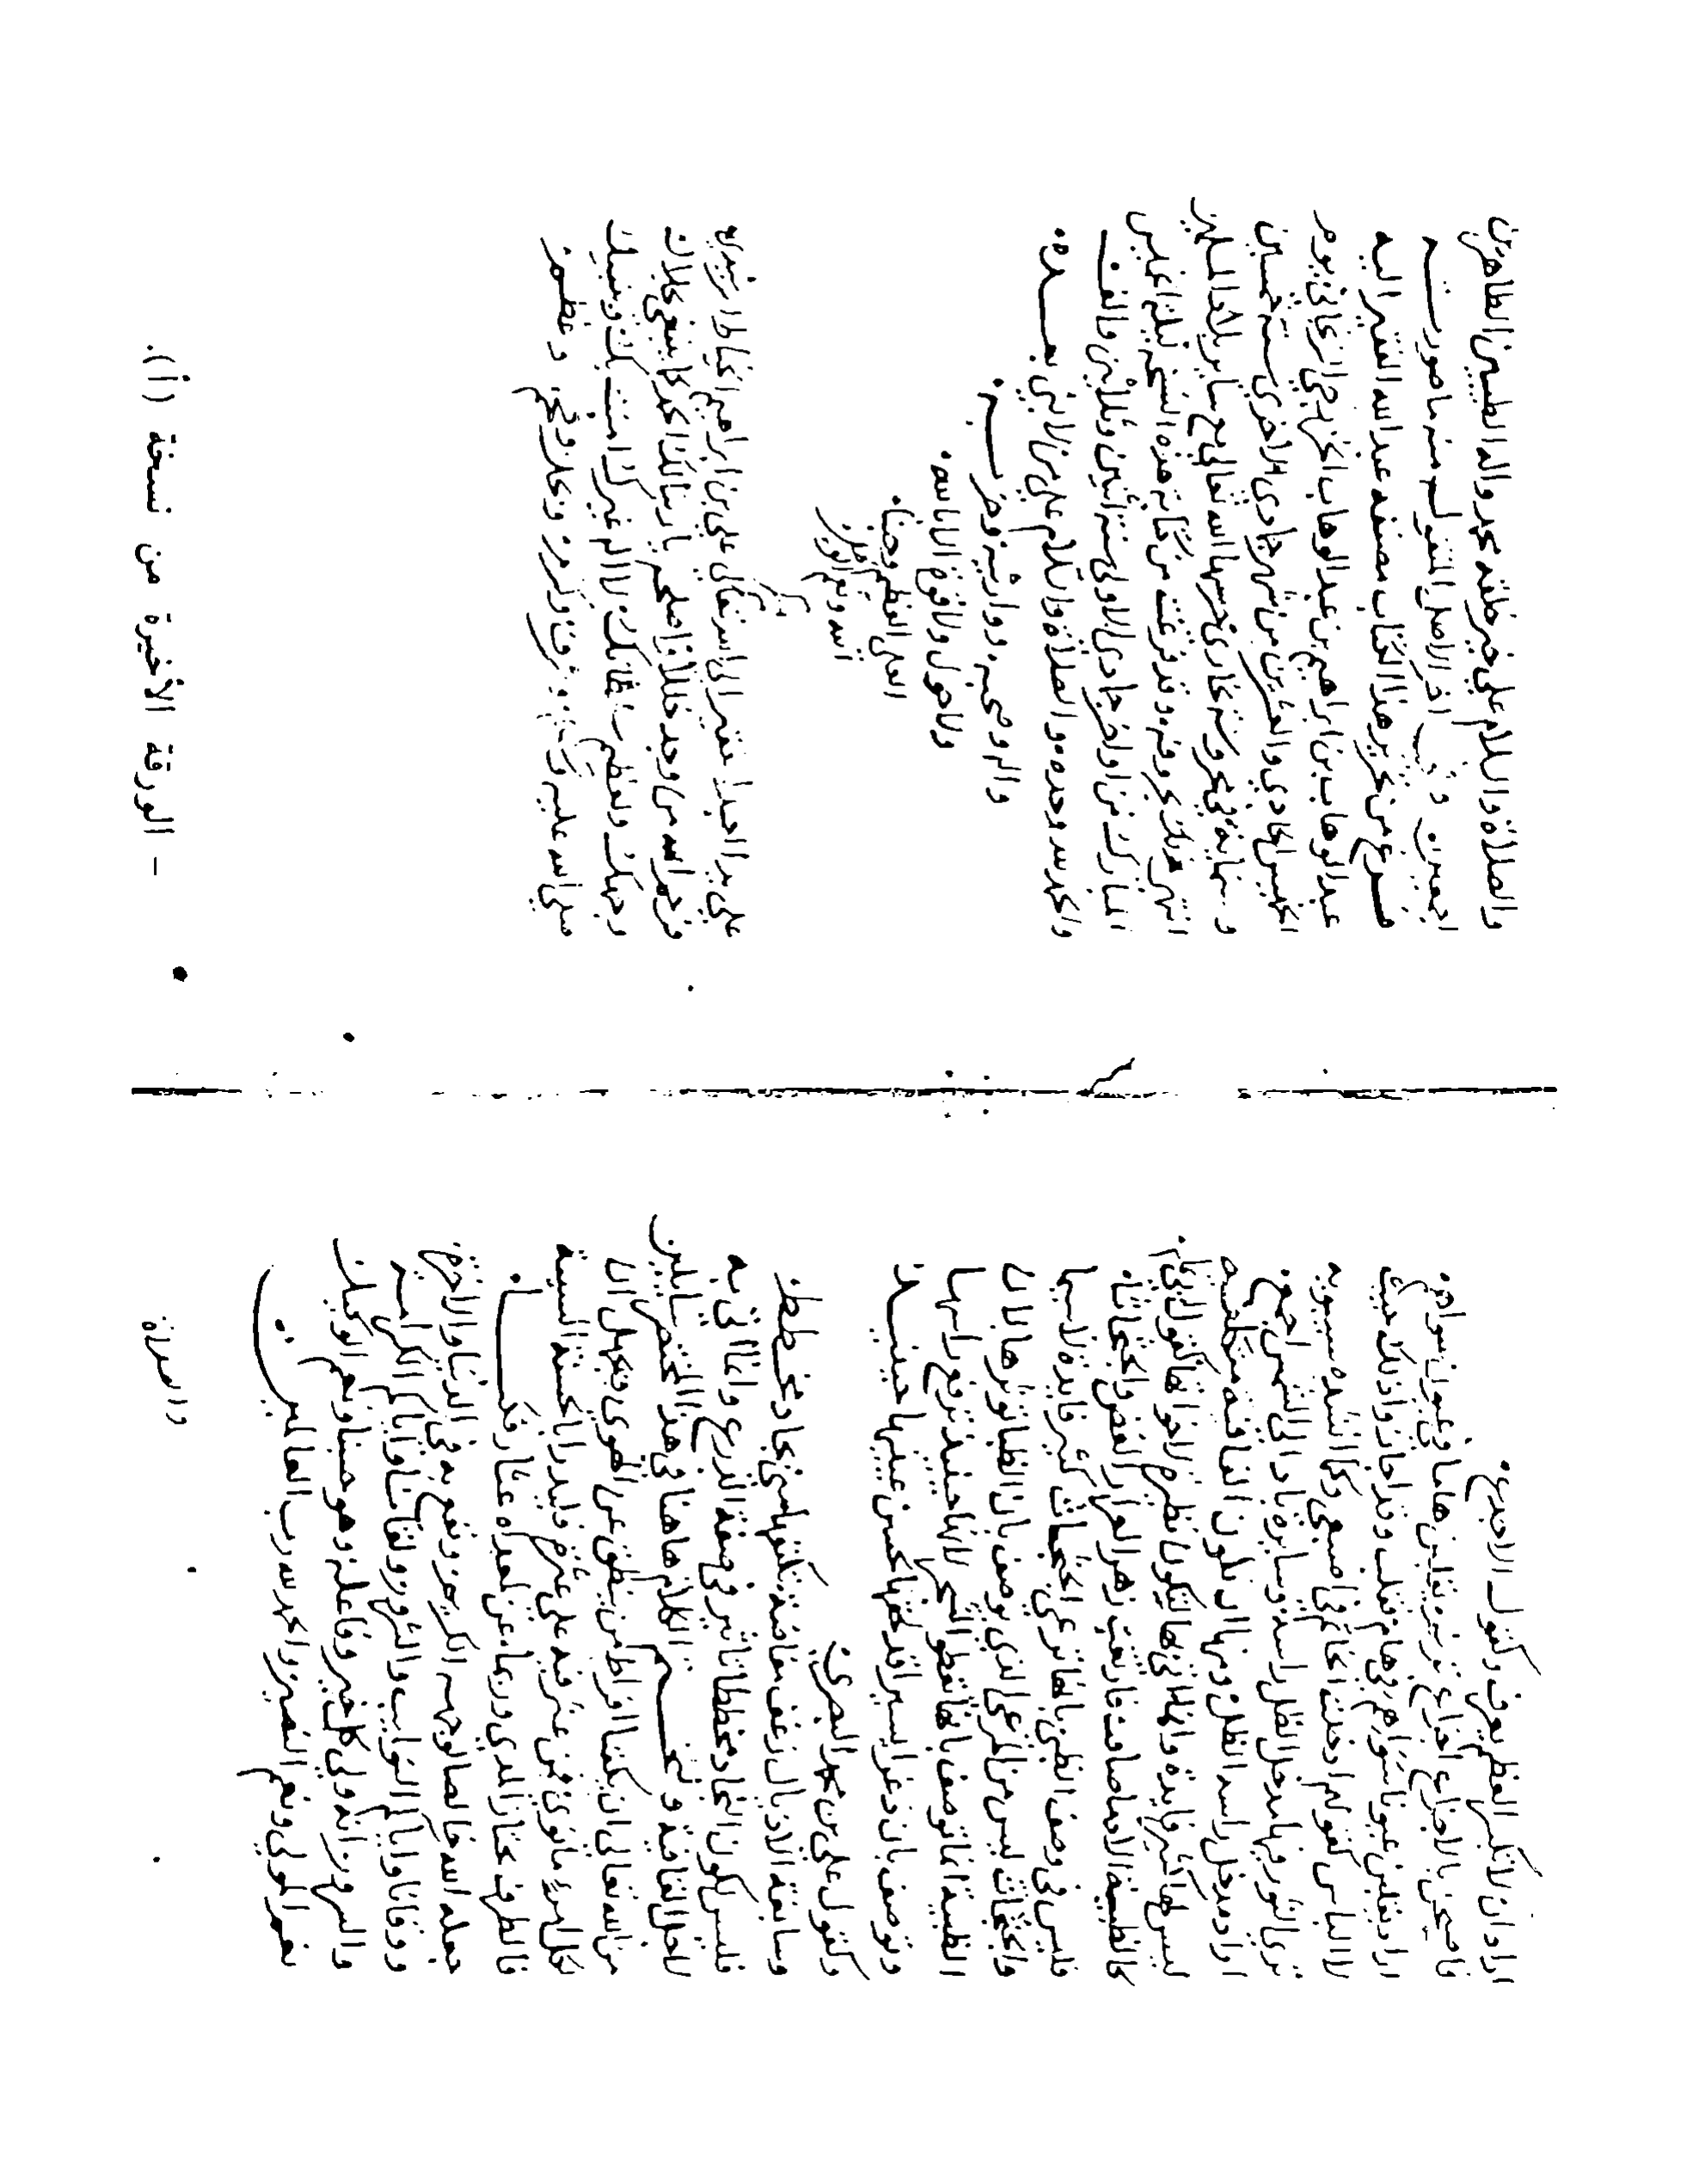 اراد ان العظم يعرف وكقول الاجدع
فاصبحن بالاجزاع اجزاع يقلبن هاما في عيون سواهم
اراد يقلبن عيونا سواهم في هام فقلب وقد اجاز ذلك حيث
لا الباس كقولهم ادخلت الخاتم في اصبعي وكما انشده سيبويه
ترى الثور فيها مدخل الظل راسه وسايره باد الى الشمس اجمع
اراد مدخل راسه الظل ومنها ان تكون القافية
ليس لها كثير فايدة وانما اتي بها لتكون نظيرة لاخواتها كقول ابي تمام
كالظبية الادماء صافت فارتعت زهر العرار الغض والجثجاثا
فليس في وصف الظبي بانها ترعى الجثجاث كثير فايدة لا سيما
والجثجاث ليس من المرعى الذي يوصف بان الظبا تؤثرها لان
الظبية انما توصف بانها تعطو الشجر لانها حينئذ ترفع راسها
وتوصف بان ذعرا يسيرا قد لحقها لحسن عينيها حينئذ
وكقول علي بن محمد البصري
وسابغة الاذيال زغف مفاضة تكنفها مني نجاد مخطط
فليس لكون النجاد مخططا تاثير في صفة الدرع وانما اتي به
لاجل القافية ولنختم الكلام هاهنا في هذا المختصر سايلين
من الله تعالى ان يكفنا افراط من ينطق عن الهوى ويجهل ان
لكل امرء ما نوى فمن عثر فيه على عثرة فليدرا بالحسنة السيئة
فالطرف مجتاز المدى وربما عن لمعداه عثار فكبا
جعله الله خالصا لوجهه الكريم ونفع به في الدنيا والاخرة
ووقانا واياكم النوايب والشرور ولقانا واياكم الكرامة
والسرور انه ولي كل خير وفاعله وهو حسبنا ونعم الوكيل
نعم المولى ونعم النصير والحمد لله رب العالمين
والصلاة
والصلاة والسلام على خير خلقه محمد واله الطيبين الطاهرين
اجمعين اخر الاصل المنقول منه ما صورته
فرغ من تحرير هذا الكتاب مصنفه عبد الله الفقير اليه
عبد الوهاب بن ابراهيم بن عبد الوهاب الخزرجي الزنجاني يوم
الخميس الحادي والعشرين من شهر جمادى الاخرى سنة خمسين
وستماية في محروسة بخارى حرسها الله تعالى مع ساير بلاد المسلمين
انتهى ذلك بحروفه وقد فرغت من كتابة هذه النسخة ليلة الخميس
المبارك من اواخر جمادى الاولى سنة اثنين وثلاثين والف
والحمد لله وحده والصلاة والسلام على من لا نبي بعده
واله وصحبه ووارثيه وحزبه
ولا حول ولا قوة الا بالله
العلي العظيم وحسبنا
الله ونعم الوكيل
على يد احقر الى الله تعالى علي بن ابراهيم الخياط الرشيدي
فرحم الله من وجد خللا فاصلحه يا ربنا لك الحمد كما ينبغي لجلال
وجهك ولعظيم سلطانك لا اله غيرك امنت بك وبنبيك
صلى الله عليه وسلم وشرف وكرم وبجل وفخم وعظم
– الورقة الأخيرة من نسخة (أ).